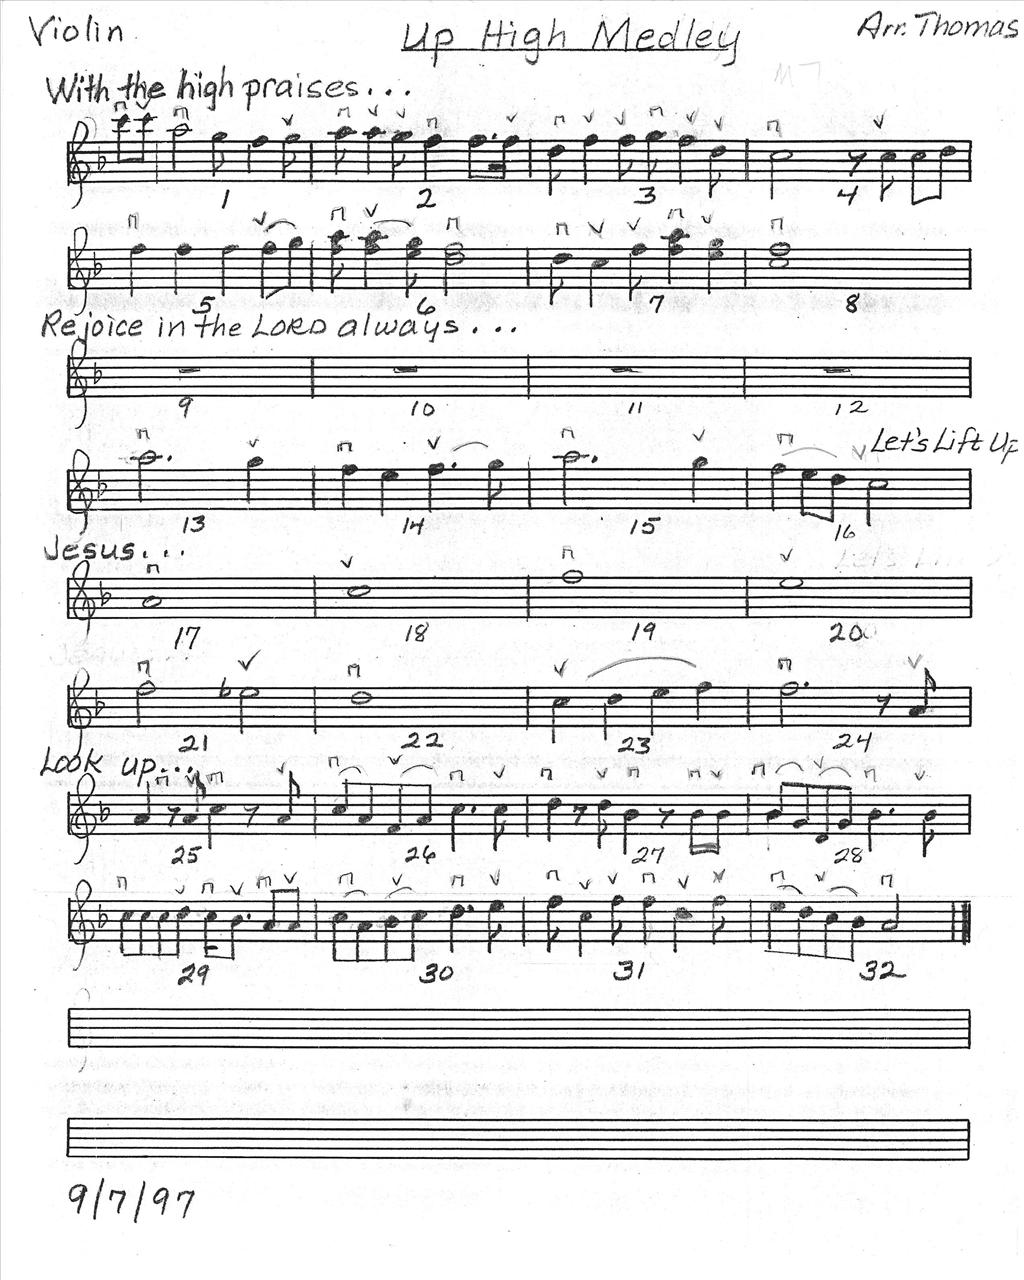 Violin
Up High Medley
Arr. Thomas
With the high praises...
1 2 3 4
5 6 7 8
Rejoice in the LORD always...
9 10 11 12
Let's Lift Up
13 14 15 16
Jesus...
17 18 19 20
21 22 23 24
Look up...
25 26 27 28
29 30 31 32
9/7/97